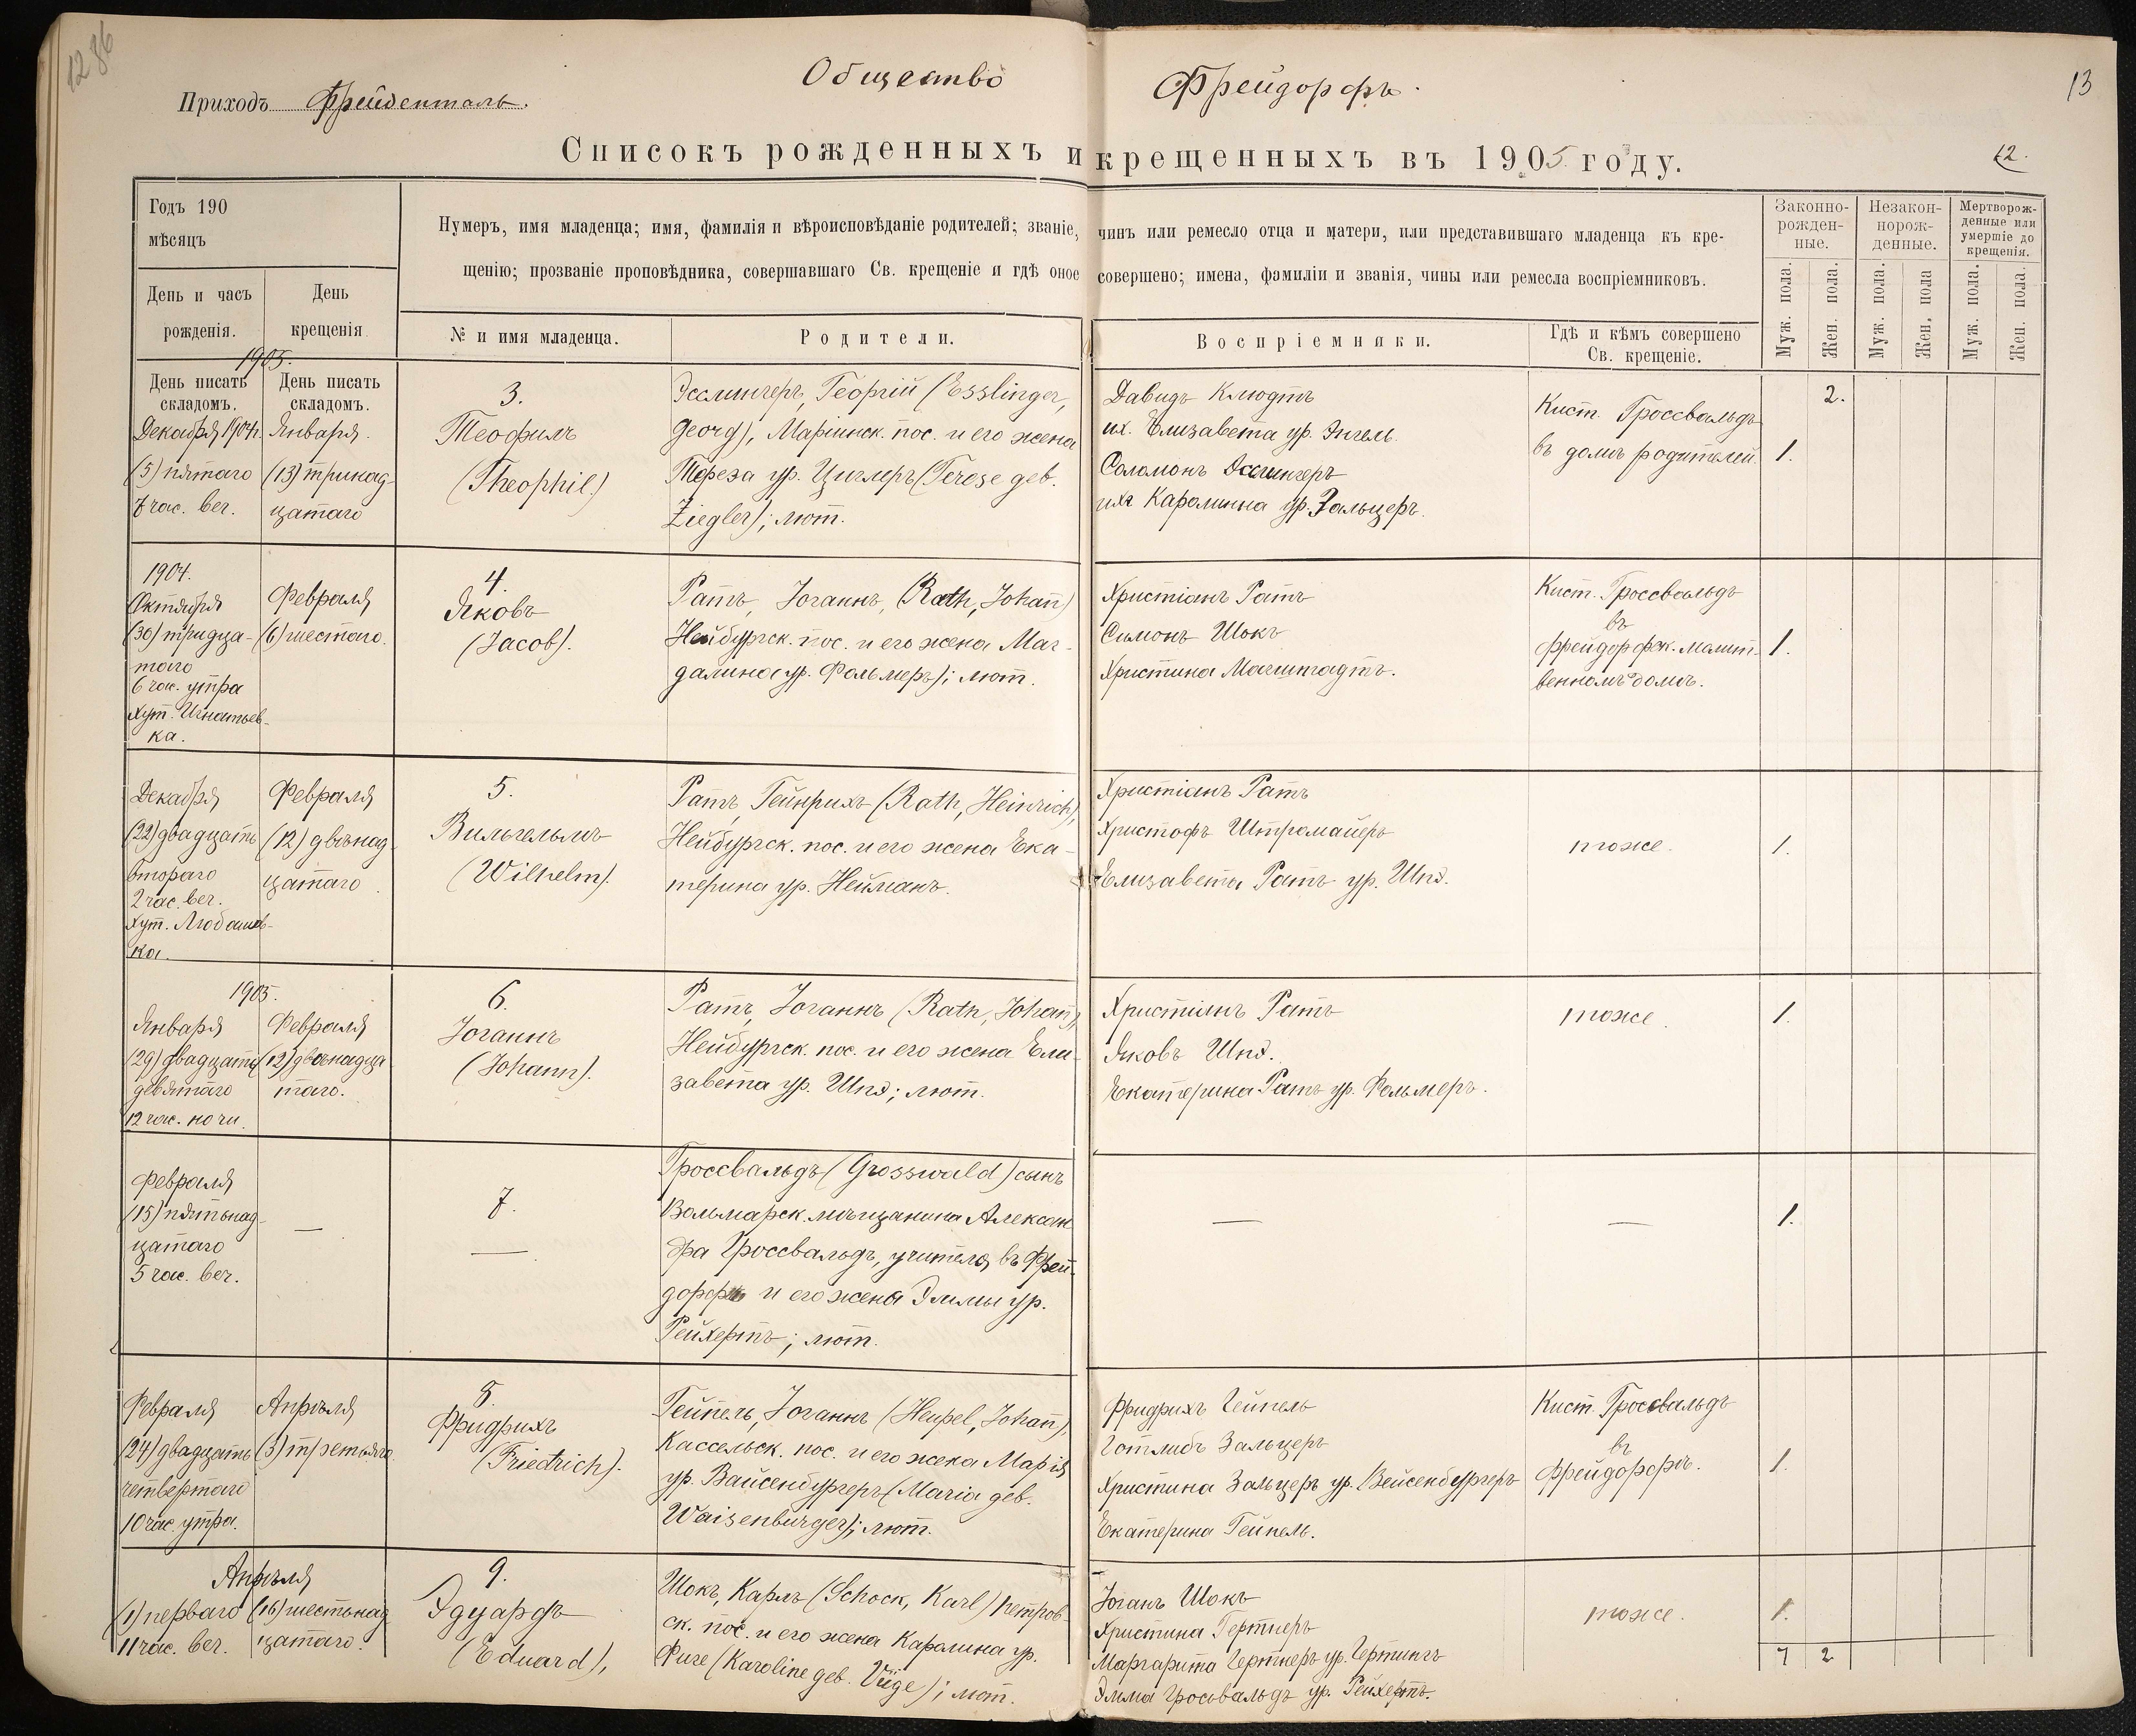 1286
Общество Фрейдорфъ.
13
Приходъ Фрейденталь.
Списокъ рожденныхъ и крещенныхъ въ 1905 году.
12.
Годъ 190
мѣсяцъ
День и часъ
рожденія.
День
крещенія
Нумеръ, имя младенца; имя, фамилія и вѣроисповѣданіе родителей; званіе, чинъ или ремесло отца и матери, или представившаго младенца къ кре-
щенію; прозваніе проповѣдника, совершавшаго Св. крещеніе и гдѣ оное совершено; имена, фамиліи и званія, чины или ремесла воспріемниковъ.
№ и имя младенца.
Родители.
Воспріемники.
Гдѣ и кѣмъ совершено
Св. крещеніе.
Законно-
рожден-
ные.
Незакон-
норож-
денные.
Мертворож-
денные или
умершіе до
крещенія.
Муж. пола.
Жен. пола.
Муж. пола.
Жен. пола
Муж. пола.
Жен. пола.
1905.
День писать
складомъ.
День писать
складомъ.
Декабря 1904г.
(5) пятаго
7 час. веч.
Января.
(13) тринад-
цатаго
3.
Теофилъ
(Theophil.)
Эсслингеръ, Георгій (Esslinger,
Georg), Маріинск. пос. и его жена
Тереза ур. Циглеръ (Terese geb.
Ziegler); лют.
Давидъ Клюдтъ
их. Елизавета ур. Энгель.
Соломонъ Эсслингеръ
ихъ Каролина ур. Зальцеръ.
Кист. Гроссвальдъ
въ домѣ родителей.
1.
2.
1904.
Октября
(30) тридца-
таго
6 час. утра
Хут. Игнатьев-
ка.
Февраля
(6) шестаго.
4.
Яковъ
(Jacob).
Ратъ, Іоганнъ, (Rath, Johan̅)
Нейбургск. пос. и его жена Маг-
далина (ур. Фольмеръ); лют.
Христіанъ Ратъ
Симонъ Шокъ
Христина
Кист. Гроссвальдъ
въ
Фрейдорфск. молит-
венномъ домѣ.
1.
Декабря
(22) двадцать
втораго
2 час. веч.
Хут.
ка.
Февраля
(12) двѣнад-
цатаго.
5.
Вильгельмъ
(Wilhelm).
Ратъ, Гейнрихъ (Rath, Heinrich),
Нейбургск. пос. и его жена Ека-
терина ур. Нейманъ.
Христіанъ Ратъ
Христофъ Штромайеръ
Елизавета Ратъ ур. Шпд.
тоже.
1.
1905.
Января
(29) двадцать
девятаго
12 час. ночи.
Февраля
(12) двѣнадца-
таго.
6.
Іоганнъ
(Johann).
Ратъ, Іоганнъ (Rath, Johan̅),
Нейбургск. пос. и его жена Ели-
завета ур. Шпд; лют.
Христіанъ Ратъ
Яковъ Шпд.
Екатерина Ратъ ур. Фольмеръ.
тоже.
1.
Февраля
(15) пятьнад-
цатаго
5 час. веч.
—
7.
—
Гроссвальдъ (Grosswald) сынъ
Вольмарск. мѣщанина Алексан
дра Гроссвальдъ, учителя въ Фрей-
дорфѣ и его жена Эммы ур.
Рейхертъ; лют.
—
—
1.
Февраля
(24) двадцать
четвертаго
10 час. утра.
Апрѣля
(3) третьяго.
8.
Фридрихъ
(Friedrich).
Гейпель, Іоганнъ (Heupel, Johan̅),
Кассельск. пос. и его жена Марія
ур. Вайсенбургеръ (Maria geb.
Waisenburger); лют.
Фридрихъ Гейпель
Готлибъ Зальцеръ
Христина Зальцеръ ур. Вейсенбургеръ
Екатерина Гейпель.
Кист. Гроссвальдъ
въ
Фрейдорфѣ.
1.
Апрѣля
(1) перваго
11 час. веч.
(16) шестьнад
цатаго.
9.
Эдуардъ
(Eduard),
Шокъ, Карлъ (Schock, Karl) Петров-
ск. пос. и его жена Каролина ур.
Фиге (Karoline geb. Vüge); лют.
Іоганъ Шокъ
Христина Гертнеръ
Маргарита Гертнеръ ур. Гертингъ
Эмма Гросвальдъ ур. Рейхертъ.
тоже.
1.
7 2